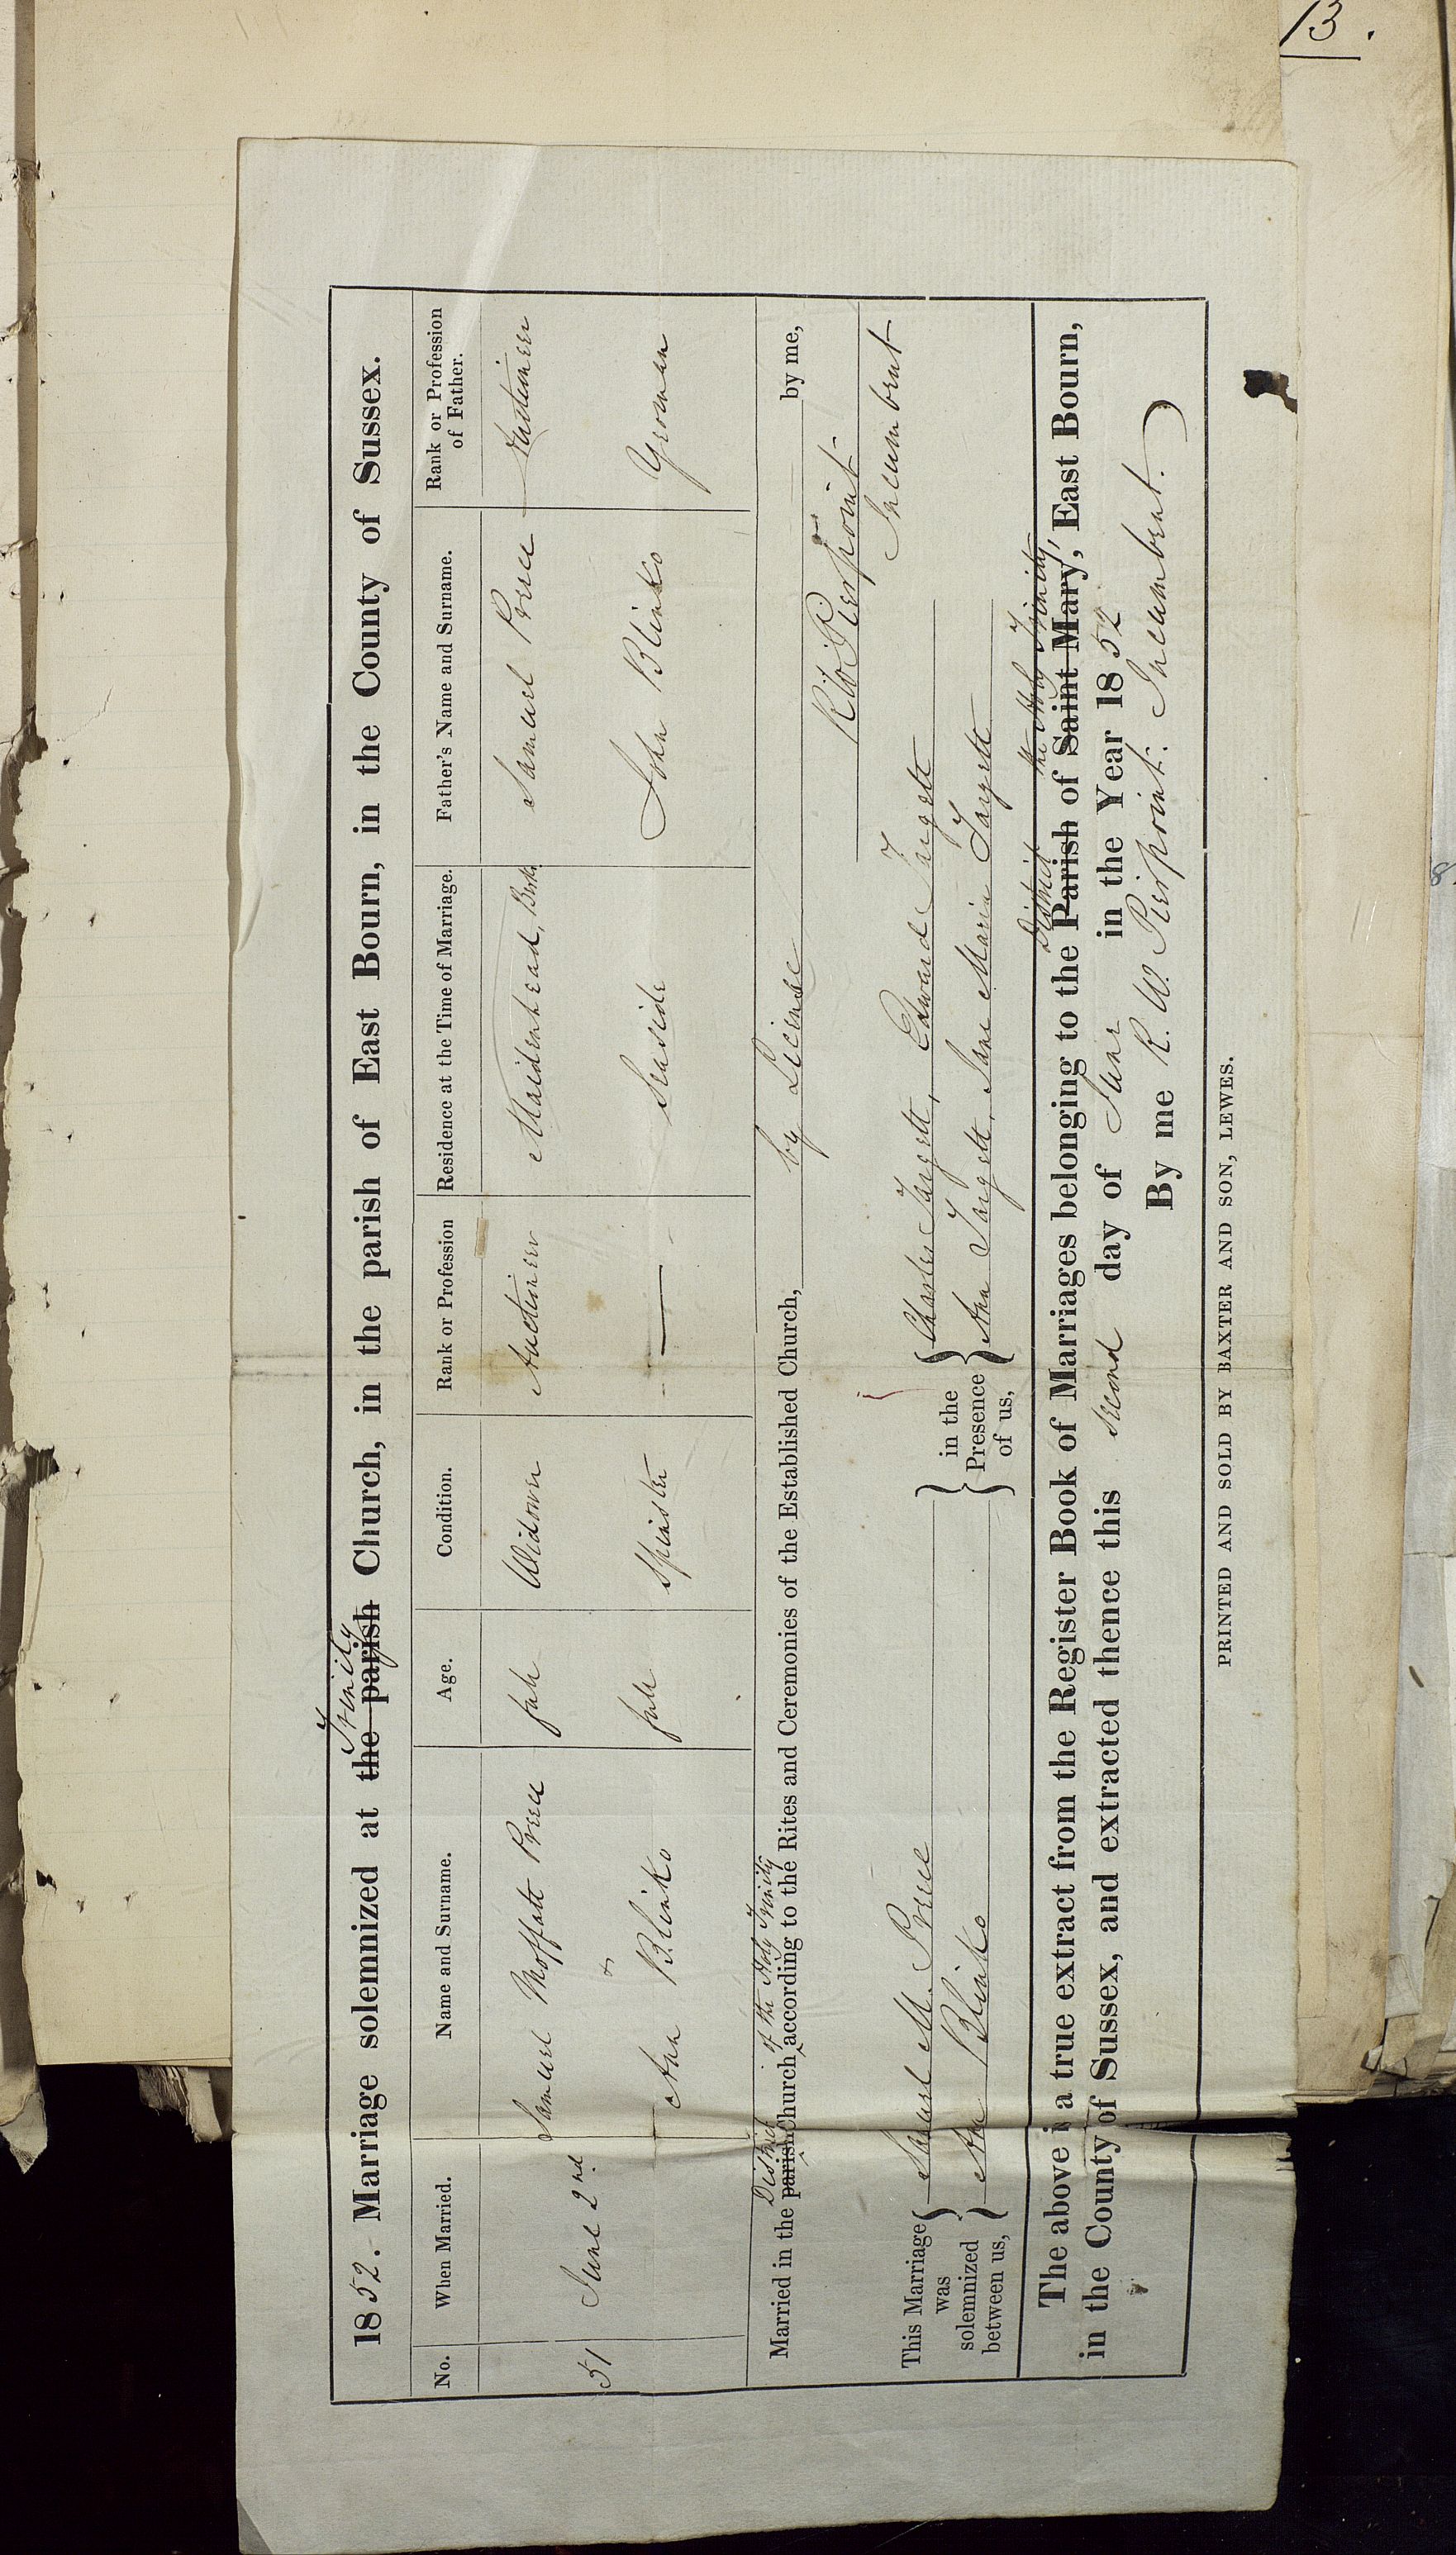 13.
Trinity
1852. Marriage solemnized at the parish Church, in the parish of East Bourn, in the County of Sussex.
No. When Married. Name and Surname. Age. Condition. Rank or Profession Residence at the Time of Marriage. Father's Name and Surname. Rank or Profession of Father.
Samuel Moffatt Preece full Widower Auctineer Maidenhead, Berks Samuel Preece Auctineer
51 June 2nd &
Ann Blinko full Spinster — Seaside John Blinko Yeoman
District of the Holy Trinity
Married in the parish Church according to the Rites and Ceremonies of the Established Church, by License by me,
R W Pierpoint
Incumbent
This Marriage was solemnized between us, Samuel M. Preece in the Presence of us, Charles Targett, Edward Targett
Ann Blinko Ann Targett, Jane Maria Targett
District the Holy Trinity,
The above is a true extract from the Register Book of Marriages belonging to the Parish of Saint Mary, East Bourn,
in the County of Sussex, and extracted thence this second day of June in the Year 1852
By me R. W. Pierpoint. Incumbent.
PRINTED AND SOLD BY BAXTER AND SON, LEWES.